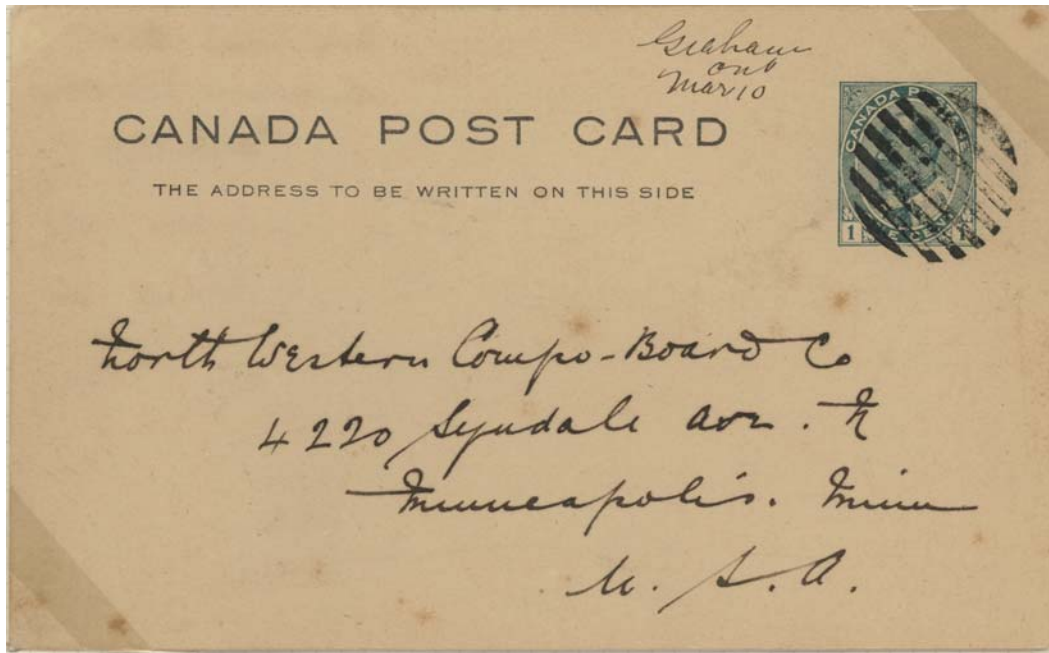 Graham
Ont
Mar 10
CANADA POST CARD
THE ADDRESS TO BE WRITTEN ON THIS SIDE
CANADA POSTAGE
1
CENT
North Western Compo-Board Co
4220 Lyndale Ave. N
Minneapolis. Minn
U. S. A.